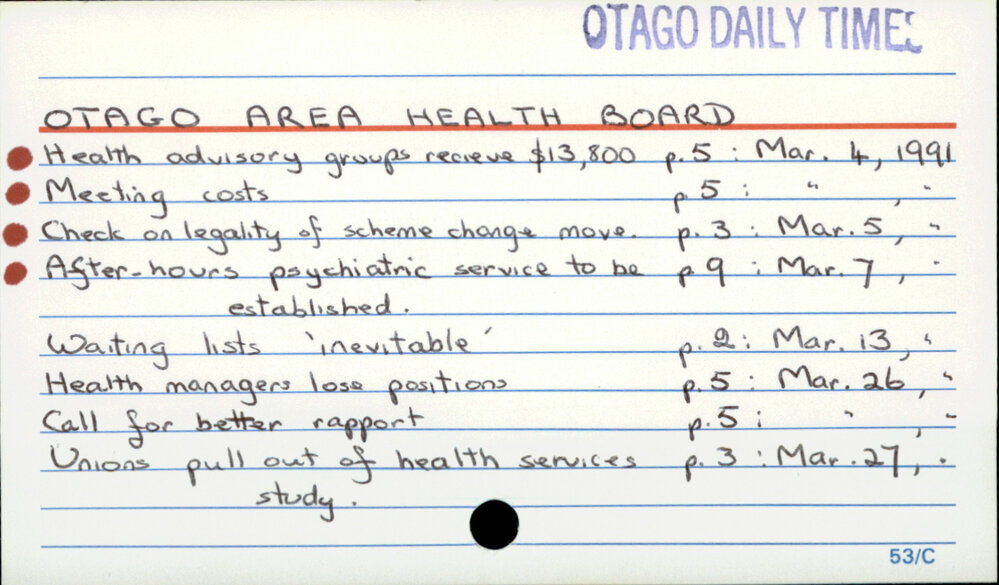 OTAGO DAILY TIMES
OTAGO AREA HEALTH BOARD
Health advisory groups recieve $13,800 p.5 : Mar. 4, 1991
Meeting costs p 5 : " , "
Check on legality of scheme change move. p. 3 : Mar. 5, "
After-hours psychiatric service to be p 9 : Mar. 7, "
established.
Waiting lists 'inevitable' p. 2 : Mar. 13, "
Health managers lose positions p. 5 : Mar. 26, "
Call for better rapport p. 5 : " , "
Unions pull out of health services p. 3 : Mar. 27, "
study.
53/C